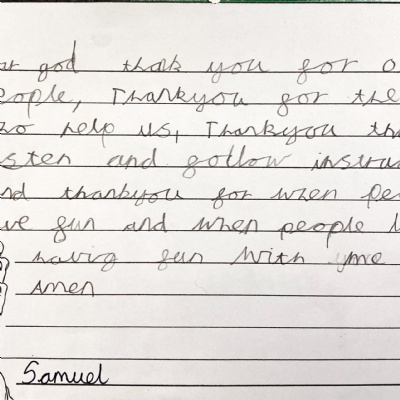 ar god thank you for o
eople, Thankyou for the
ho help us, Thankyou tha
isten and follow instruc
nd thankyou for when pe
ve fun and when people l
having fun with me
Amen
Samuel